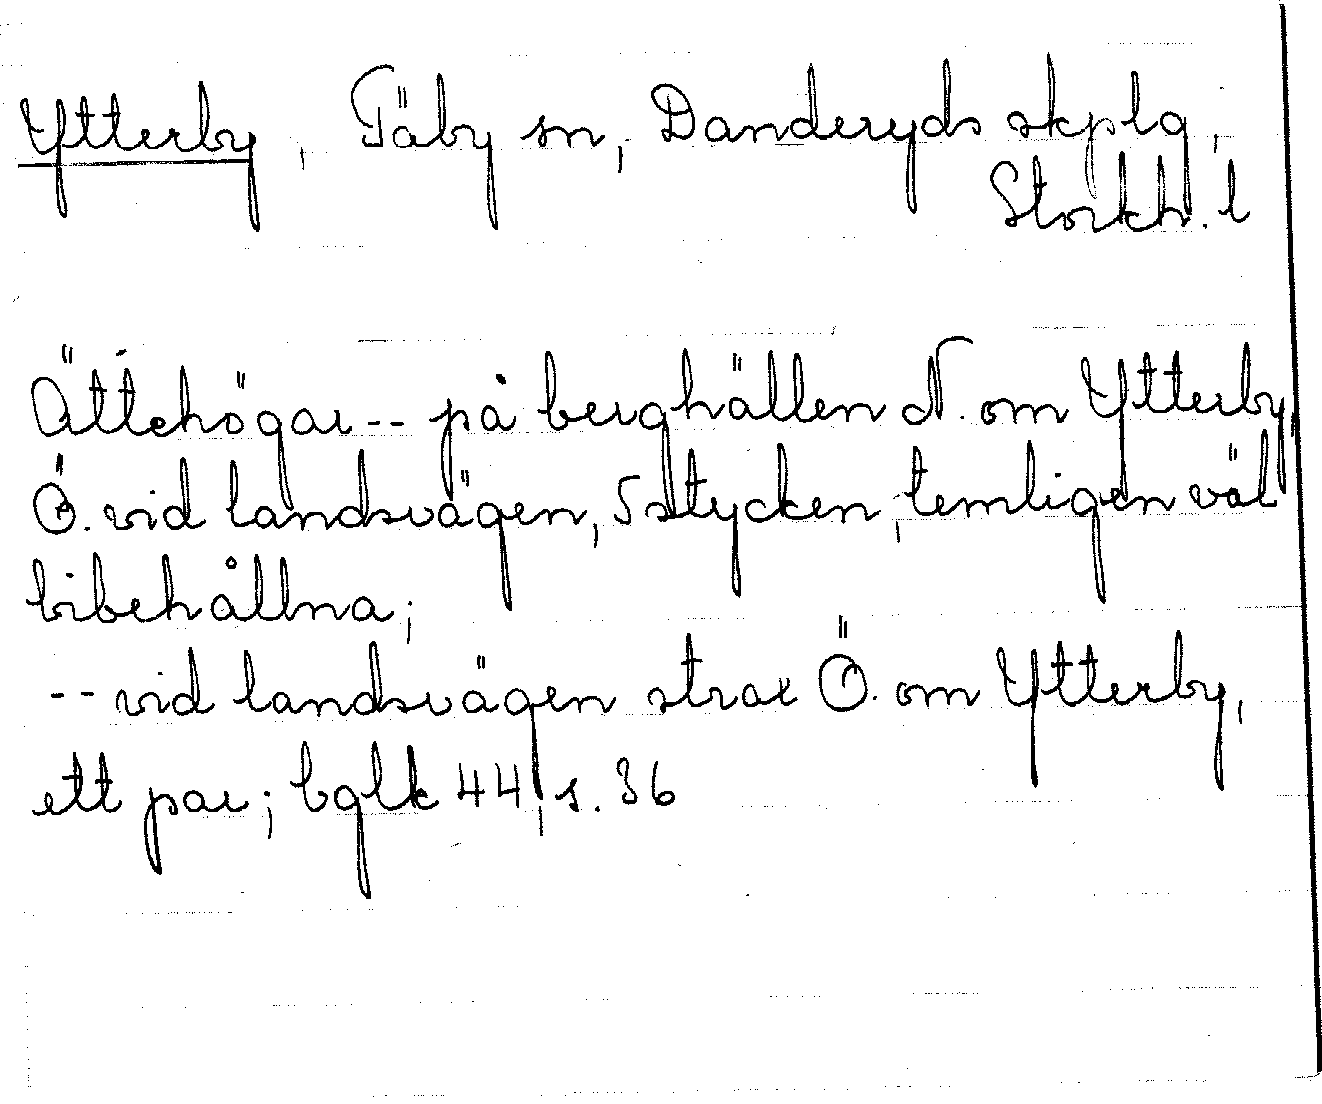 Ytterby, Täby sn, Danderyds skplg,
Stockh. l
Ättehögar -- på berghällen N. om Ytterby,
Ö. vid landsvägen, 5 stycken, temligen väl
bibehållna;
-- vid landsvägen strax Ö. om Ytterby,
ett par; bglk 44, s. 36